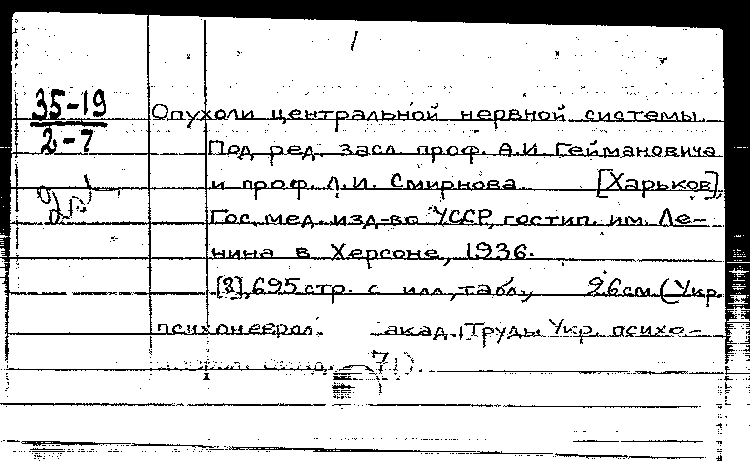 35-19
2-7
Опухоли центральной нервной системы.
Под ред. засл. проф. А.И. Геймановича
и проф. Л.И. Смирнова. [Харьков],
Гос. мед. изд-во УССР, гостип. им. Ле-
нина в Херсоне, 1936.
[8], 695 стр. с илл., табл., 26 см. (Укр.
психоневрол. акад., Труды Укр. психо-
акад. 71).